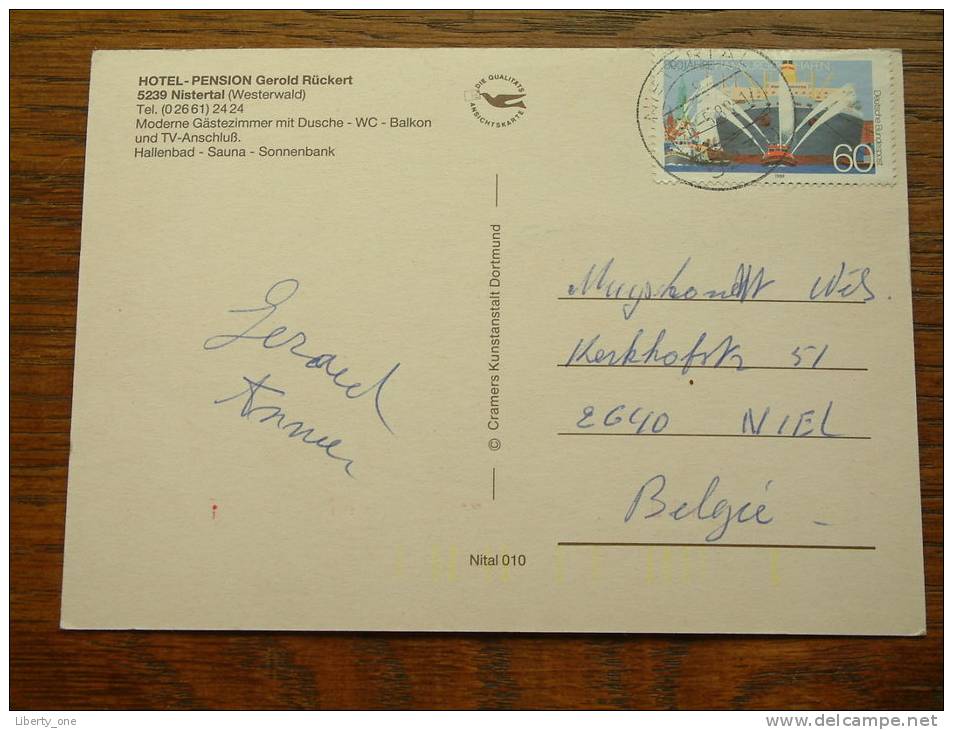 HOTEL-PENSION Gerold Rückert
5239 Nistertal (Westerwald)
Tel. (0 26 61) 24 24
Moderne Gästezimmer mit Dusche - WC - Balkon
und TV-Anschluß.
Hallenbad - Sauna - Sonnenbank
DIE QUALITÄTS
ANSICHTSKARTE
800 JAHRE HAFEN
Deutsche Bundespost
60
1989
© Cramers Kunstanstalt Dortmund
Gerard
Kerkhofstr 51
2640 NIEL
België -
Nital 010
Liberty_one
http://www.delcampe.net